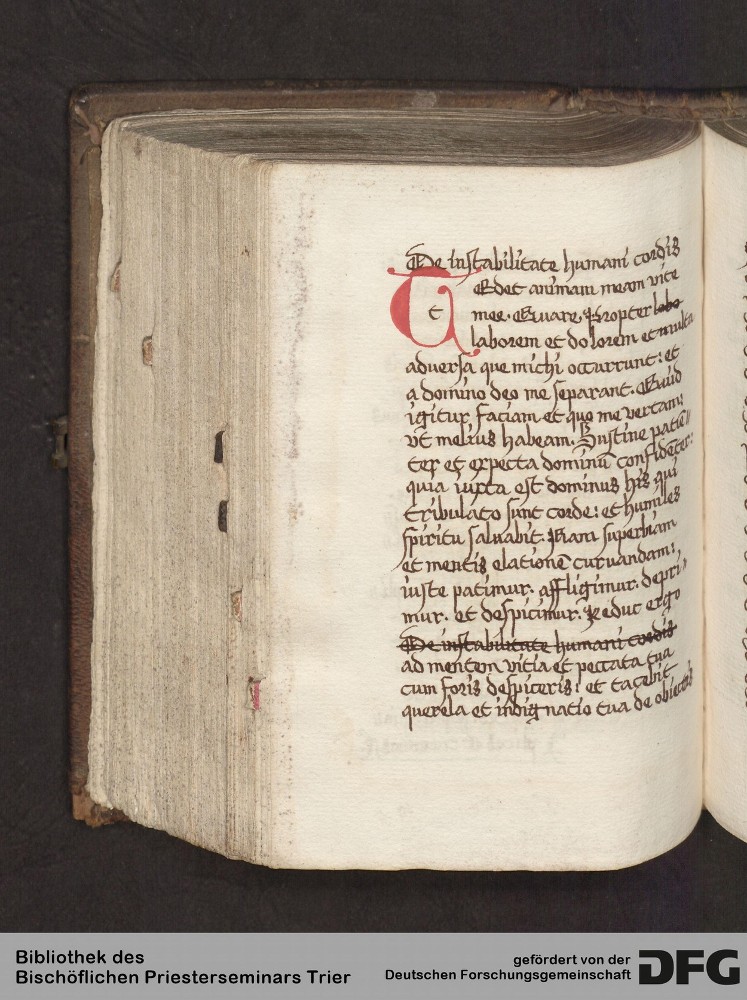 De instabilitate humani cordis
Tedet animam meam vite
mee. Quare. Propter labo
laborem et dolorem et multa
adversa que michi occurrunt: et
a domino deo me separant. Quid
igitur faciam et quo me vertam:
vt melius habeam. Sustine patiē
ter et expecta dominū confidēter:
quia iuxta est dominus his qui
tribulato sunt corde: et humiles
spiritu saluabit. Nam superbiam
et mentis elationē curuandam:
iuste patimur. affligimur. depri
mur. et despicimur. Reduc ergo
De instabilitate humani cordis
ad mentem vitia et peccata tua
cum foris despiceris: et tacebit
querela et indignatio tua de obiectis
Bibliothek des
Bischöflichen Priesterseminars Trier
gefördert von der
Deutschen Forschungsgemeinschaft DFG